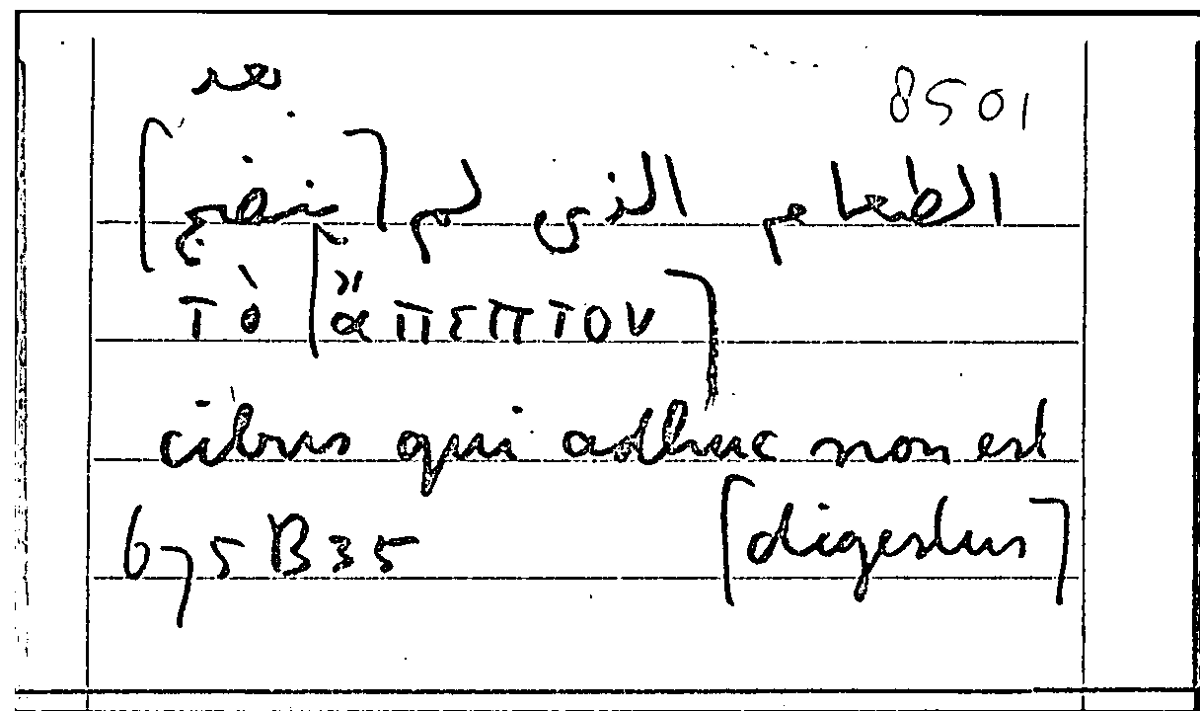 8501
بعد
الطعام الذى لم [ينضج]
τὸ [ἄπεπτον]
cibus qui adhuc non est
675B35 [digestus]